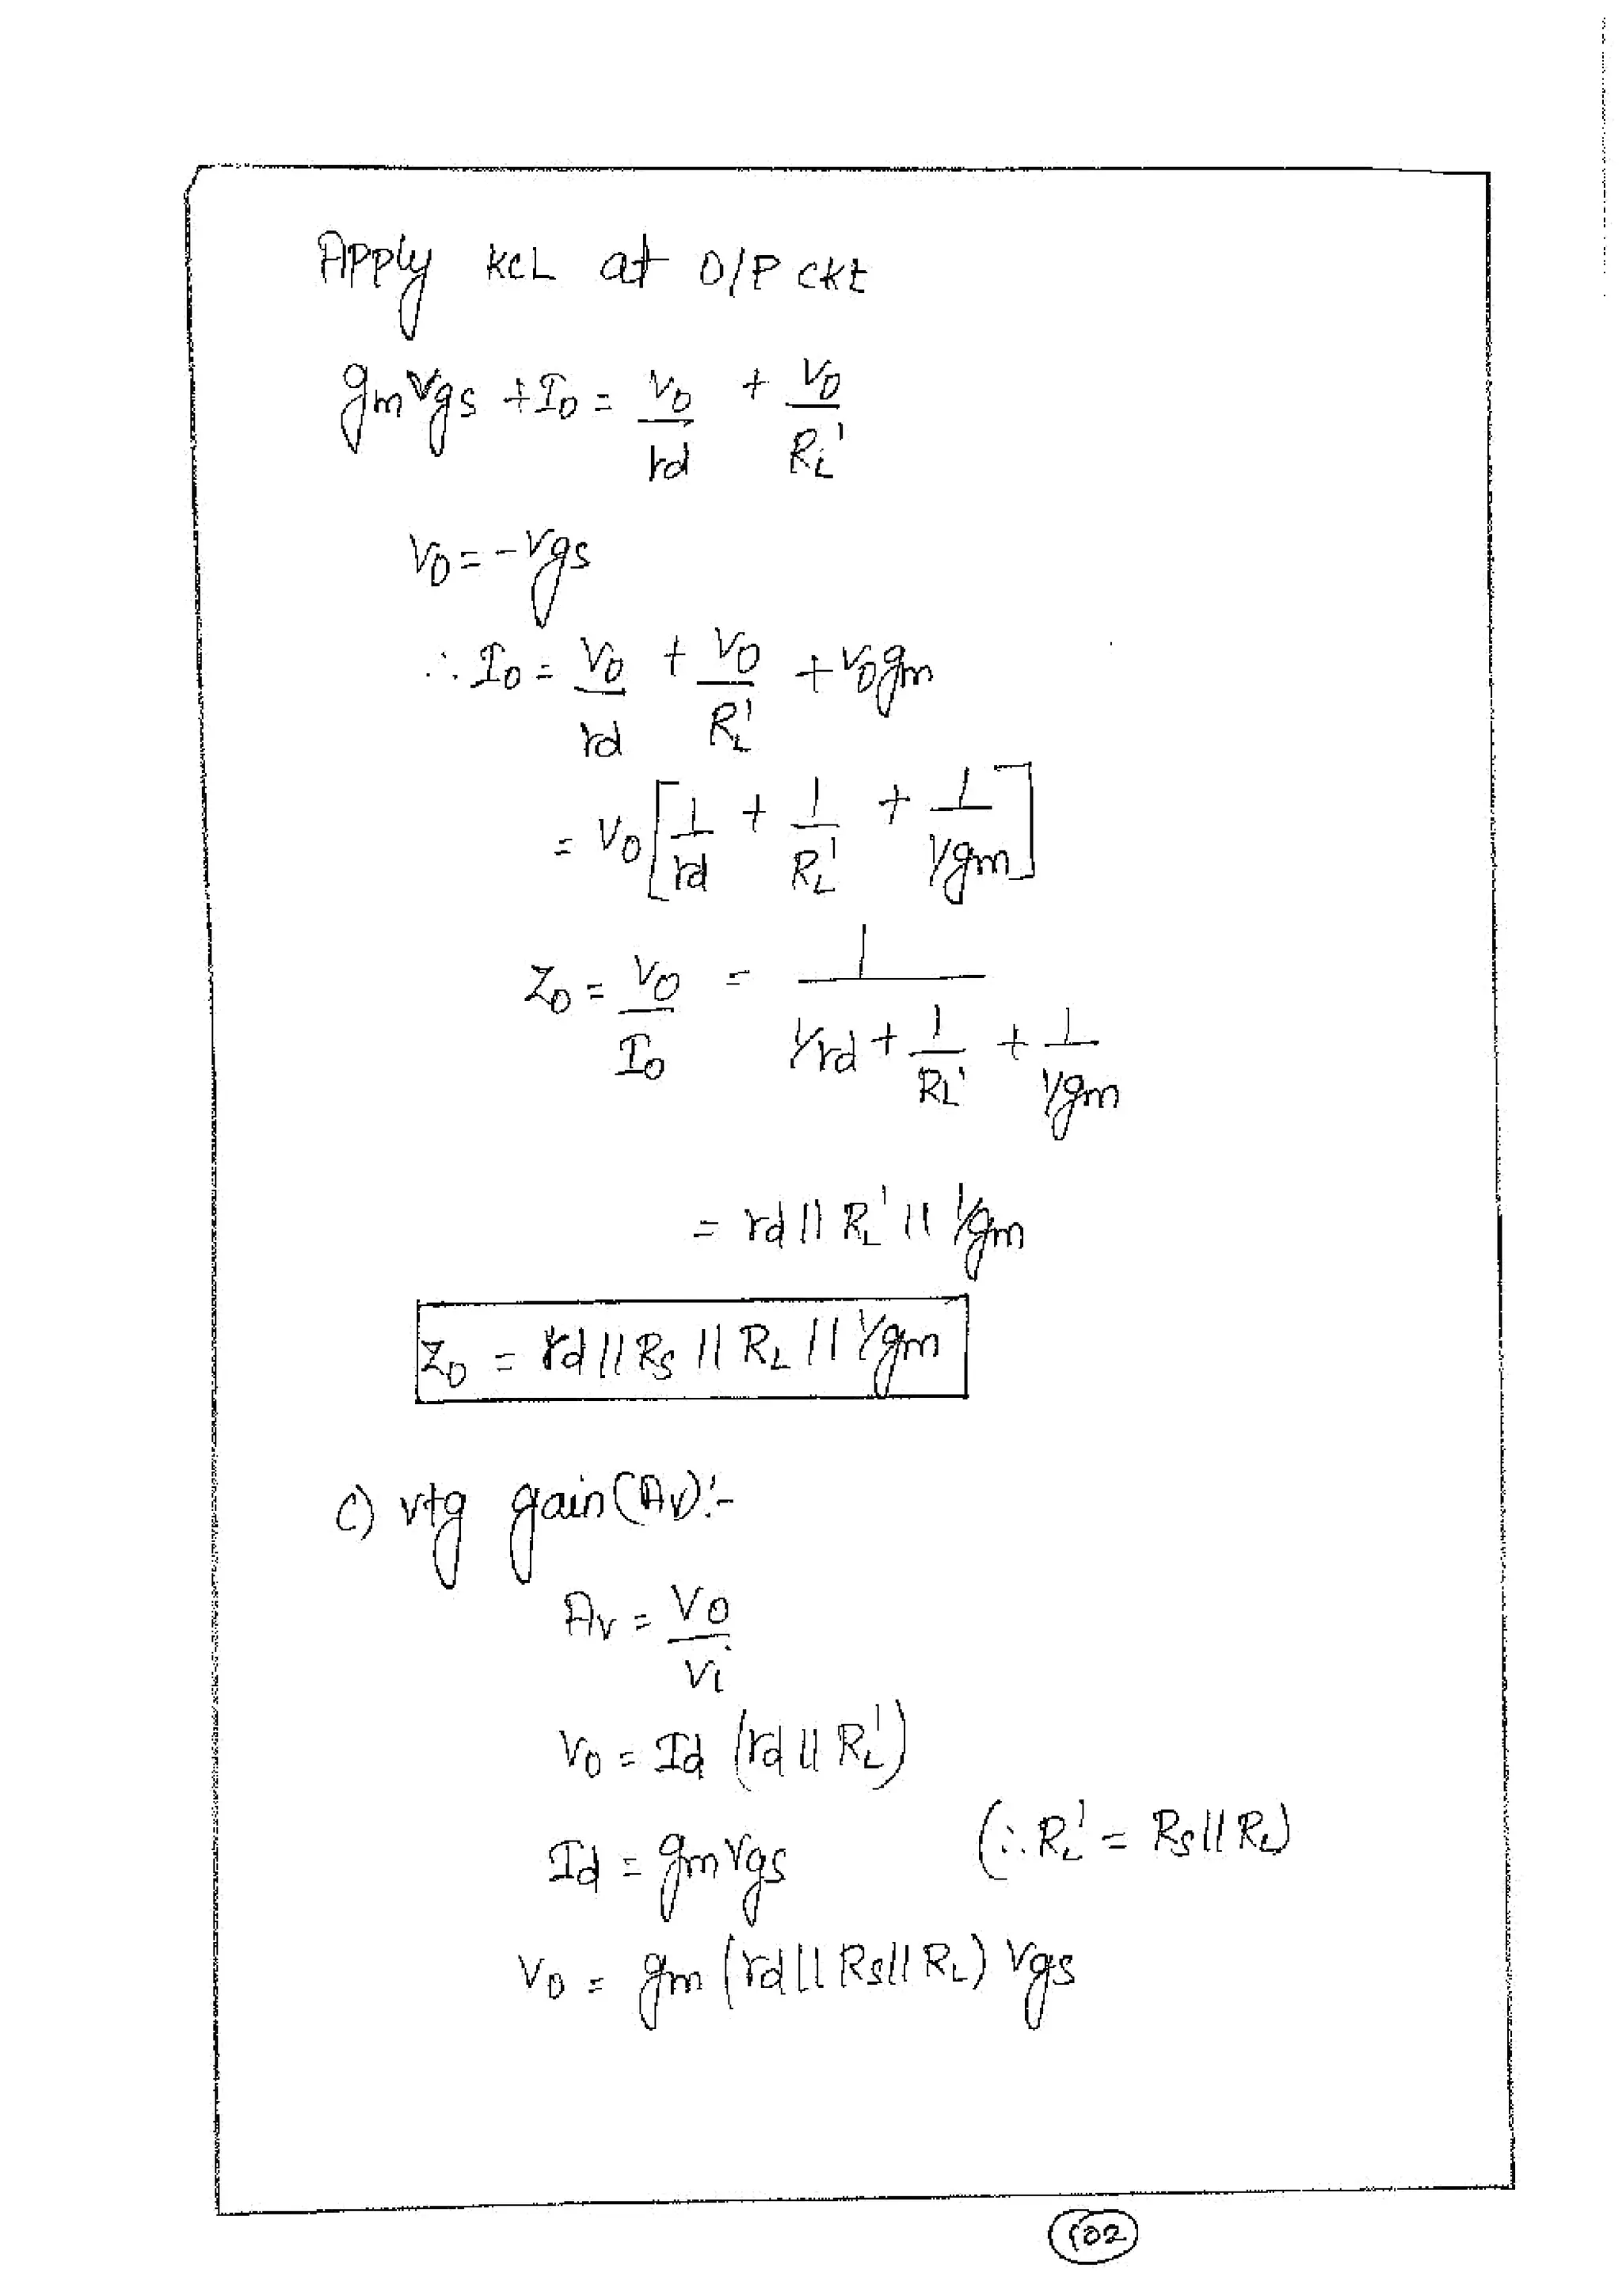 Apply KCL at O/P ckt
gmVgs + Io = Vo/rd + Vo/RL'
Vo = -Vgs
∴ Io = Vo/rd + Vo/RL' + Vogm
= Vo[1/rd + 1/RL' + 1/1/gm]
Zo = Vo/Io = 1/(1/rd + 1/RL' + 1/1/gm)
= rd || RL' || 1/gm
Zo = rd || Rs || RL || 1/gm
c) vtg gain (Av):-
Av = Vo/Vi
Vo = Id (rd || RL')
Id = gmVgs (∴ RL' = Rs || RL)
Vo = gm (rd || Rs || RL) Vgs
102